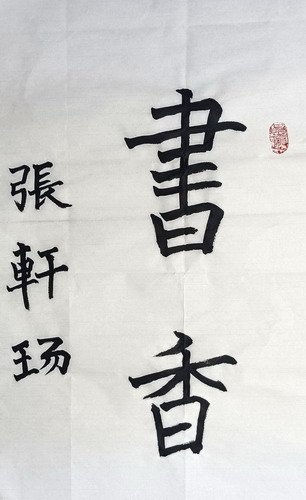 書香
張軒瑒